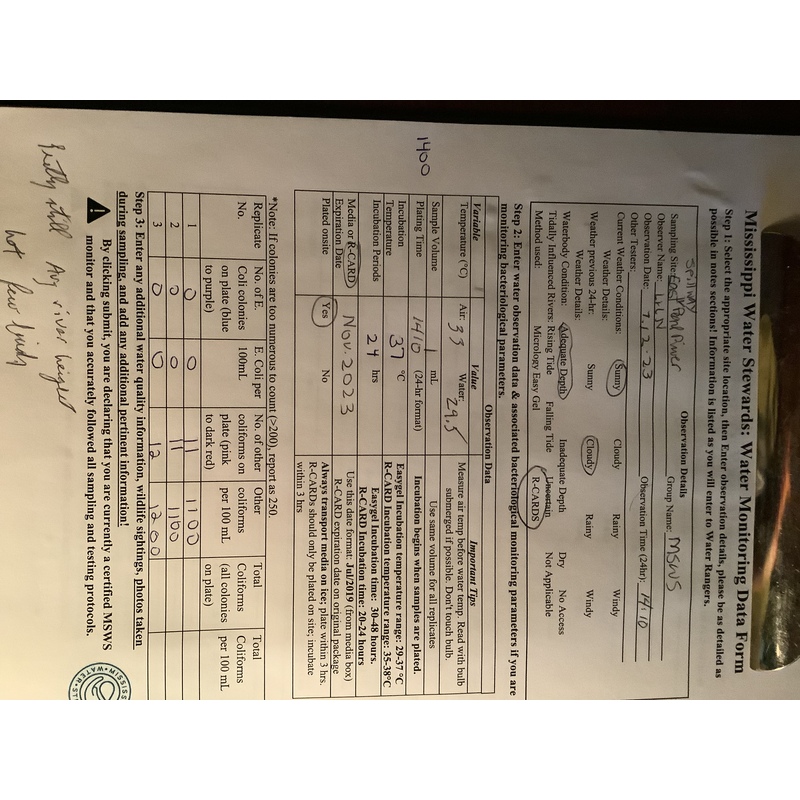 Mississippi Water Stewards: Water Monitoring Data Form
Step 1: Select the appropriate site location, then Enter observation details, please be as detailed as
possible in notes sections! Information is listed as you will enter to Water Rangers.
Observation Details
Spillway
Sampling Site: East Pond Pinner Group Name: MSWS
Observer Name: LLLN
Observation Date: 7.12.23 Observation Time (24hr): 1410
Other Testers:
Current Weather Conditions: Sunny Cloudy Rainy Windy
Weather Details:
Weather previous 24-hr: Sunny Cloudy Rainy Windy
Weather Details:
Waterbody Condition: Adequate Depth Inadequate Depth Dry No Access
Tidally Influenced Rivers: Rising Tide Falling Tide Uncertain Not Applicable
Method used: Micrology Easy Gel R-CARDS
Step 2: Enter water observation data & associated bacteriological monitoring parameters if you are
monitoring bacteriological parameters.
Observation Data
Variable Value Important Tips
Temperature (°C) Air: 33 Water: 29.5 Measure air temp before water temp. Read with bulb
submerged if possible. Don't touch bulb.
Sample Volume 1 mL Use same volume for all replicates
1400
Plating Time 1410 (24-hr format) Incubation begins when samples are plated.
Incubation
Temperature 37 °C Easygel Incubation temperature range: 29-37 °C
R-CARD Incubation temperature range: 35-38°C
Incubation Periods 24 hrs Easygel Incubation time: 30-48 hours.
R-CARD Incubation time: 20-24 hours
Media or R-CARD
Expiration Date Nov. 2023 Use this date format: Jul/2019 (from media box)
R-CARD expiration date on original package
Plated onsite Yes No Always transport media on ice; plate within 3 hrs.
R-CARDs should only be plated on site; incubate
within 3 hrs
*Note: If colonies are too numerous to count (>200), report as 250.
Replicate No. No. of E. Coli colonies on plate (blue to purple) E. Coli per 100mL No. of other coliforms on plate (pink to dark red) Other Coliforms per 100 mL Total Coliforms (all colonies on plate) Total Coliforms per 100 mL
1 0 0 11 1100
2 0 0 11 1100
3 0 0 12 1200
Step 3: Enter any additional water quality information, wildlife sightings, photos taken
during sampling, and add any additional pertinent information!
By clicking submit, you are declaring that you are currently a certified MSWS
monitor and that you accurately followed all sampling and testing protocols.
Pretty still Avg river height
hot few birds